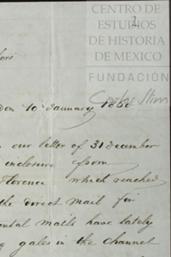 CENTRO DE
ESTUDIOS
DE HISTORIA
DE MÉXICO
FUNDACIÓN
Carlos Slim
don 10 January 186
our letter of 31 December
enclosure from
Florence which reached
the direct mail for
mails have lately
gales in the channel